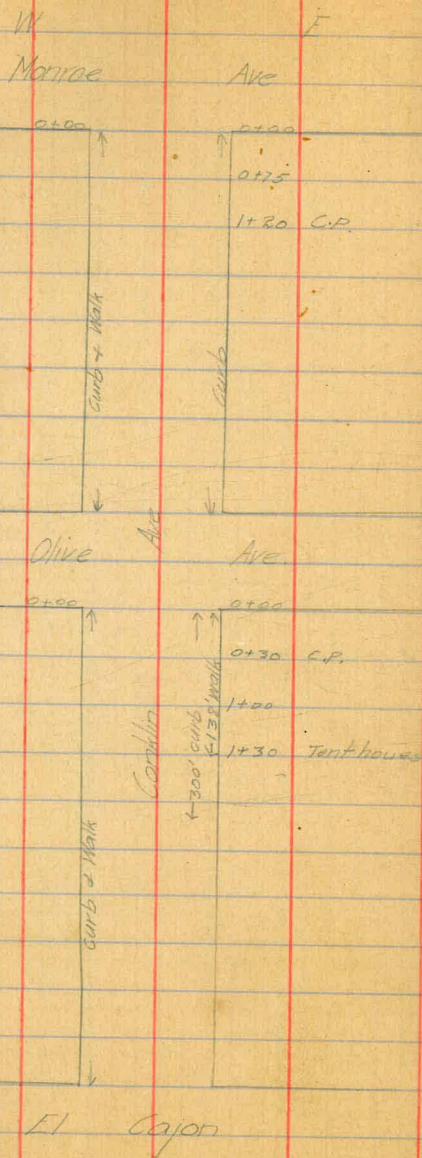 W E
Monroe Ave
0+00 0+00
0+75
1+20 C.P.
Curb & Walk
Curb
Ave
Olive Ave.
0+00 0+00
0+30 C.P.
1+00
1+30 Tenthouse
Conklin
300' curb
138' walk
Curb & Walk
El Cajon